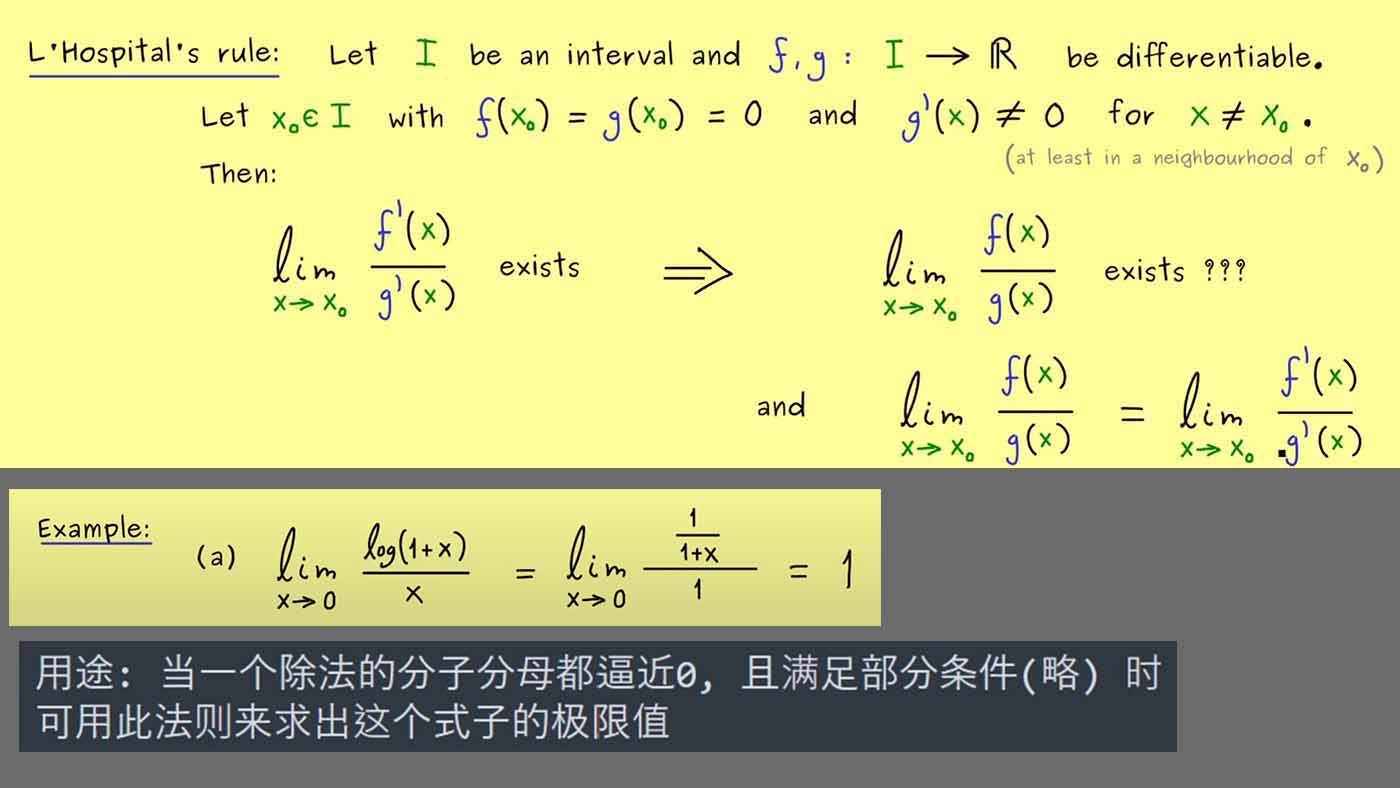 L'Hospital's rule: Let I be an interval and f, g : I → ℝ be differentiable.
Let x₀ ∈ I with f(x₀) = g(x₀) = 0 and g'(x) ≠ 0 for x ≠ x₀ .
(at least in a neighbourhood of x₀)
Then:
lim x→x₀ f'(x)/g'(x) exists ⟹ lim x→x₀ f(x)/g(x) exists ???
and lim x→x₀ f(x)/g(x) = lim x→x₀ f'(x)/g'(x)
Example: (a) lim x→0 log(1+x)/x = lim x→0 (1/(1+x))/1 = 1
用途: 当一个除法的分子分母都逼近0, 且满足部分条件(略) 时
可用此法则来求出这个式子的极限值